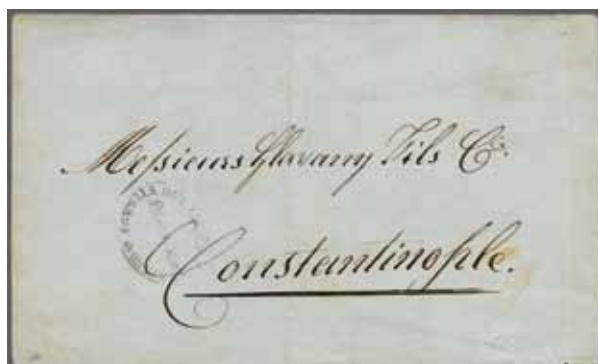 Messieurs Glavany Fils Cie.
Constantinople.